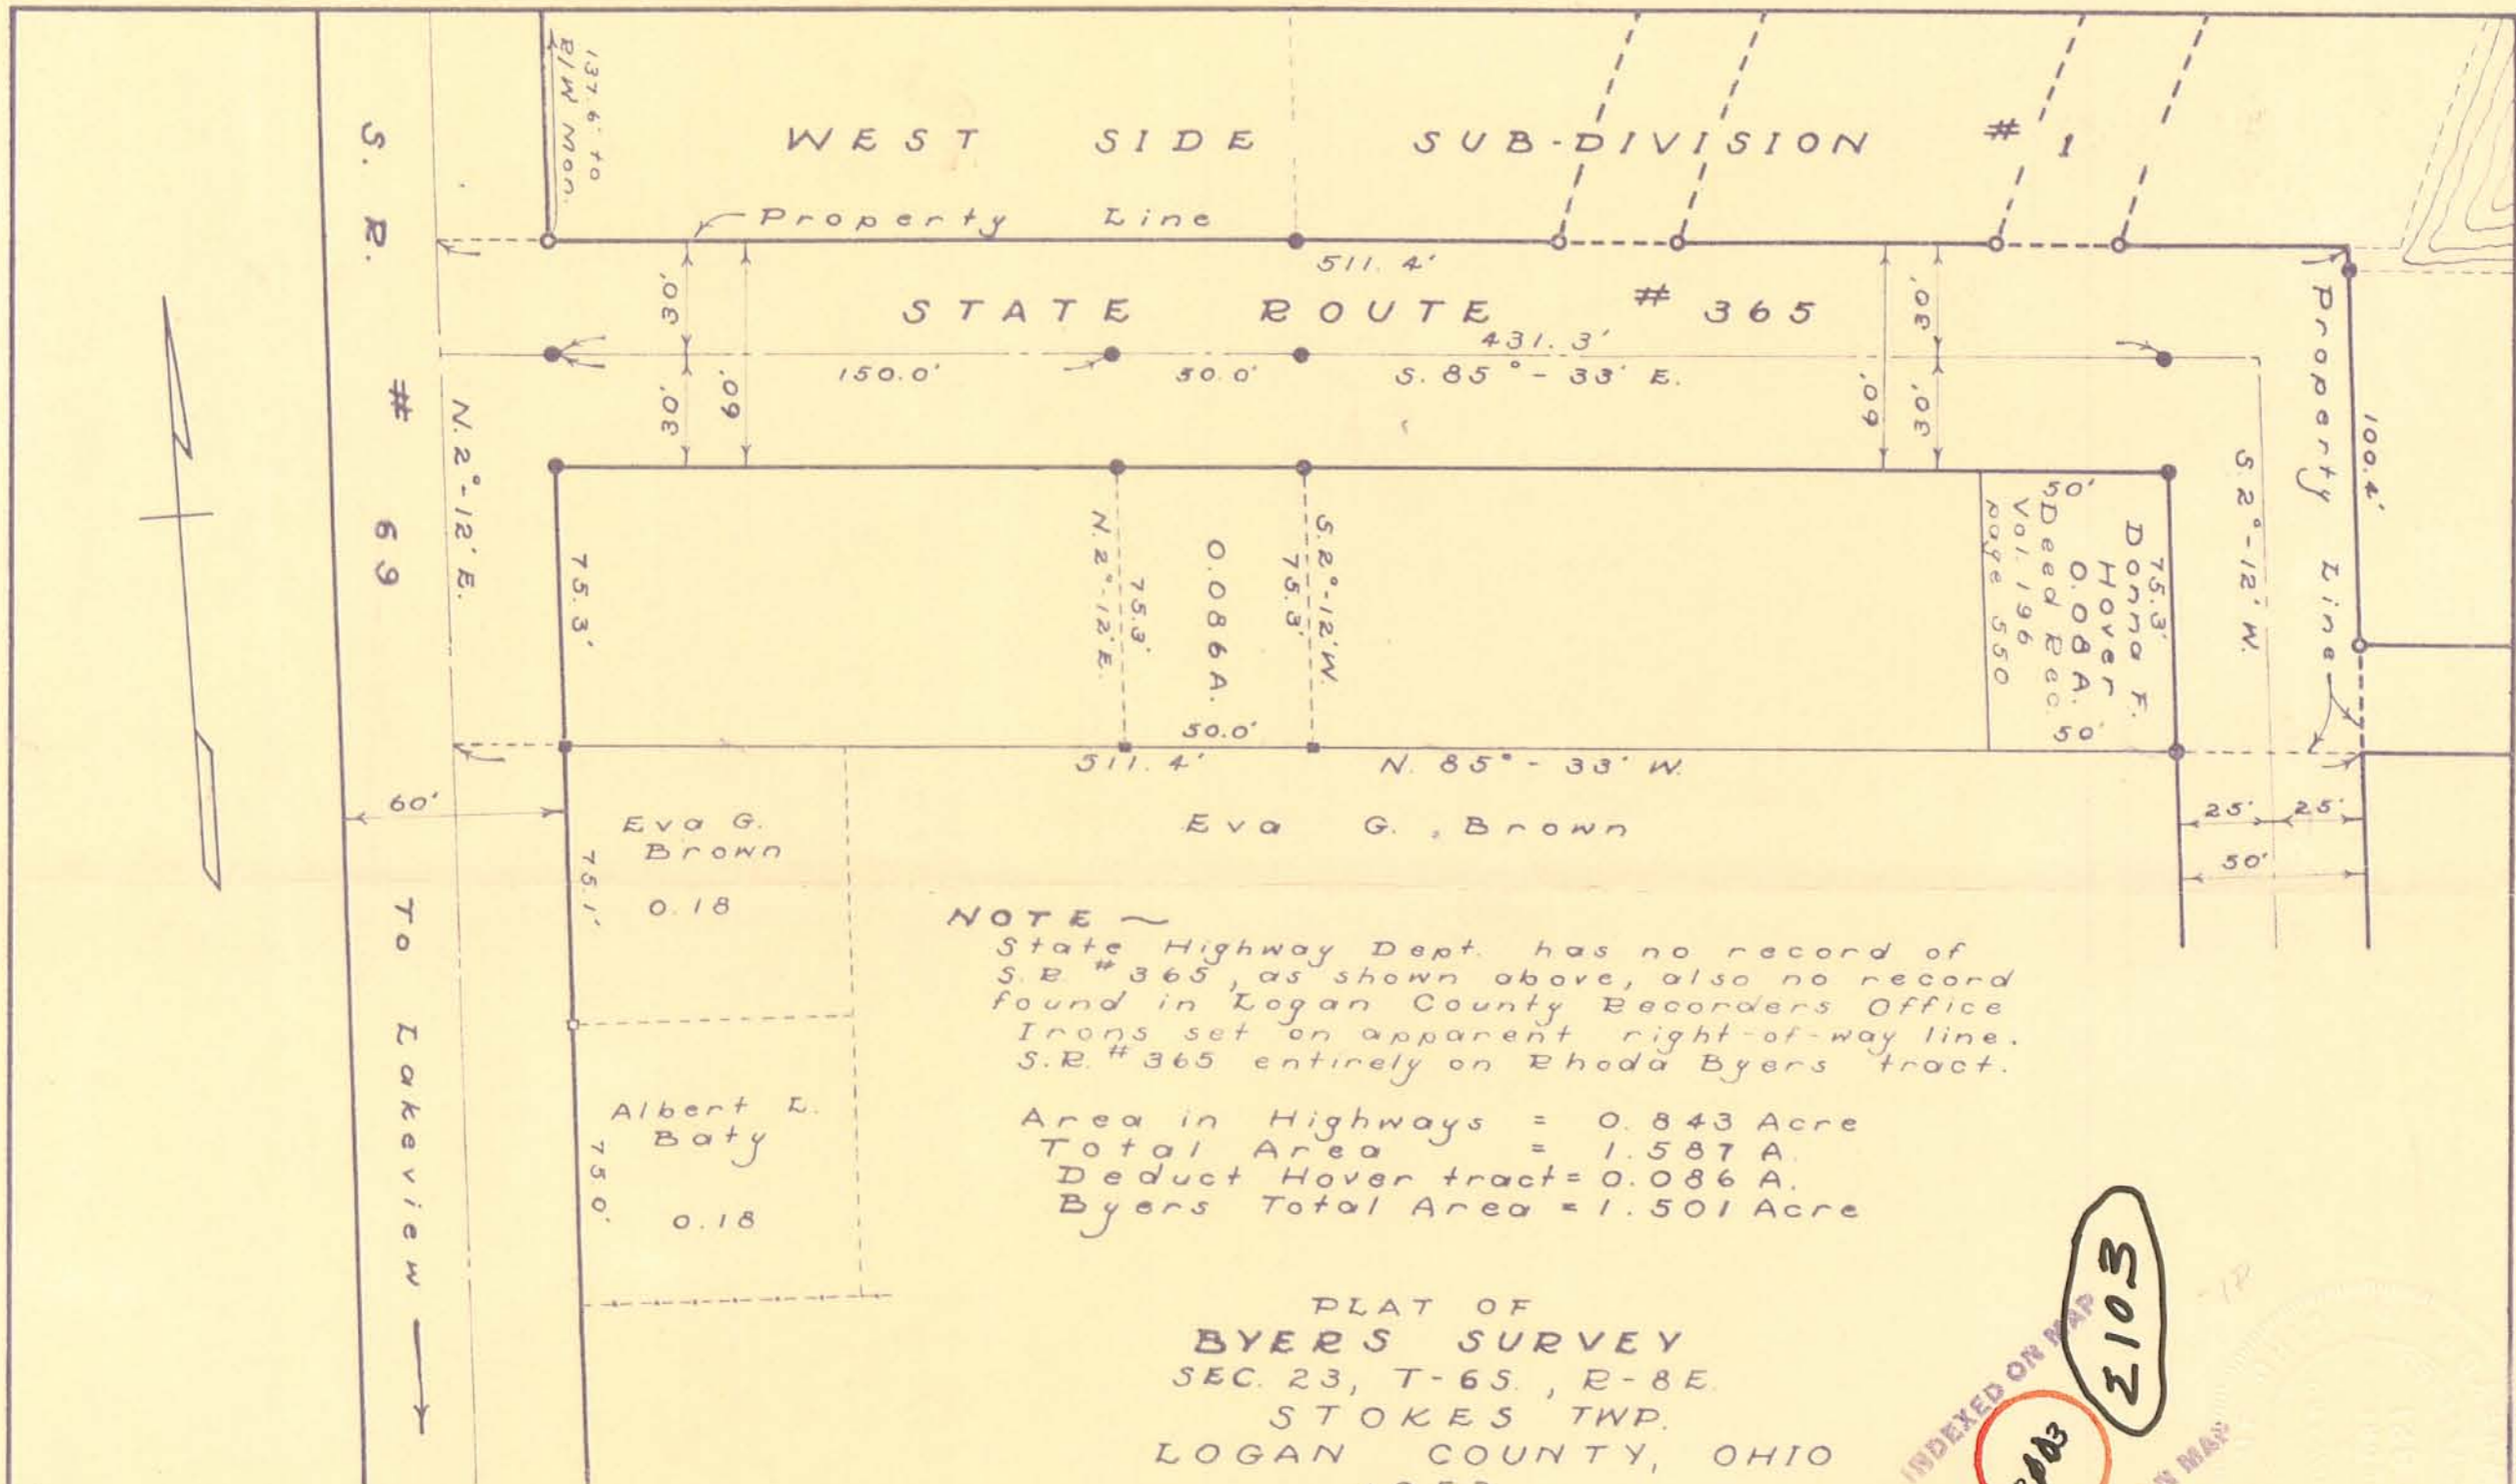 137.6' to
R/W Mon.
WEST SIDE SUB-DIVISION # 1
Property Line
511.4'
S.R. # 69 TO Lakeview
STATE ROUTE # 365
30'
30'
60'
30'
30'
60'
431.3'
150.0'
50.0'
S. 85° - 33' E.
N. 2° - 12' E.
Property Line
100.4'
S. 2° - 12' W.
75.3'
N. 2° - 12' E.
75.3'
0.086 A.
75.3'
S. 2° - 12' W.
50.0'
50'
75.3'
Donna F.
Hover
0.08 A.
Deed Rec.
Vol. 196
page 550
50'
511.4'
N. 85° - 33' W.
60'
Eva G.
Brown
0.18
75.1'
Eva G. Brown
25'
25'
50'
NOTE ~
State Highway Dept. has no record of
S.R. # 365, as shown above, also no record
found in Logan County Recorders Office
Irons set on apparent right-of-way line.
S.R. # 365 entirely on Rhoda Byers tract.
Albert L.
Baty
0.18
75.0'
Area in Highways = 0.843 Acre
Total Area = 1.587 A.
Deduct Hover tract = 0.086 A.
Byers Total Area = 1.501 Acre
PLAT OF
BYERS SURVEY
SEC. 23, T-6S., R-8E.
STOKES TWP.
LOGAN COUNTY, OHIO
INDEXED ON MAP
N MAP